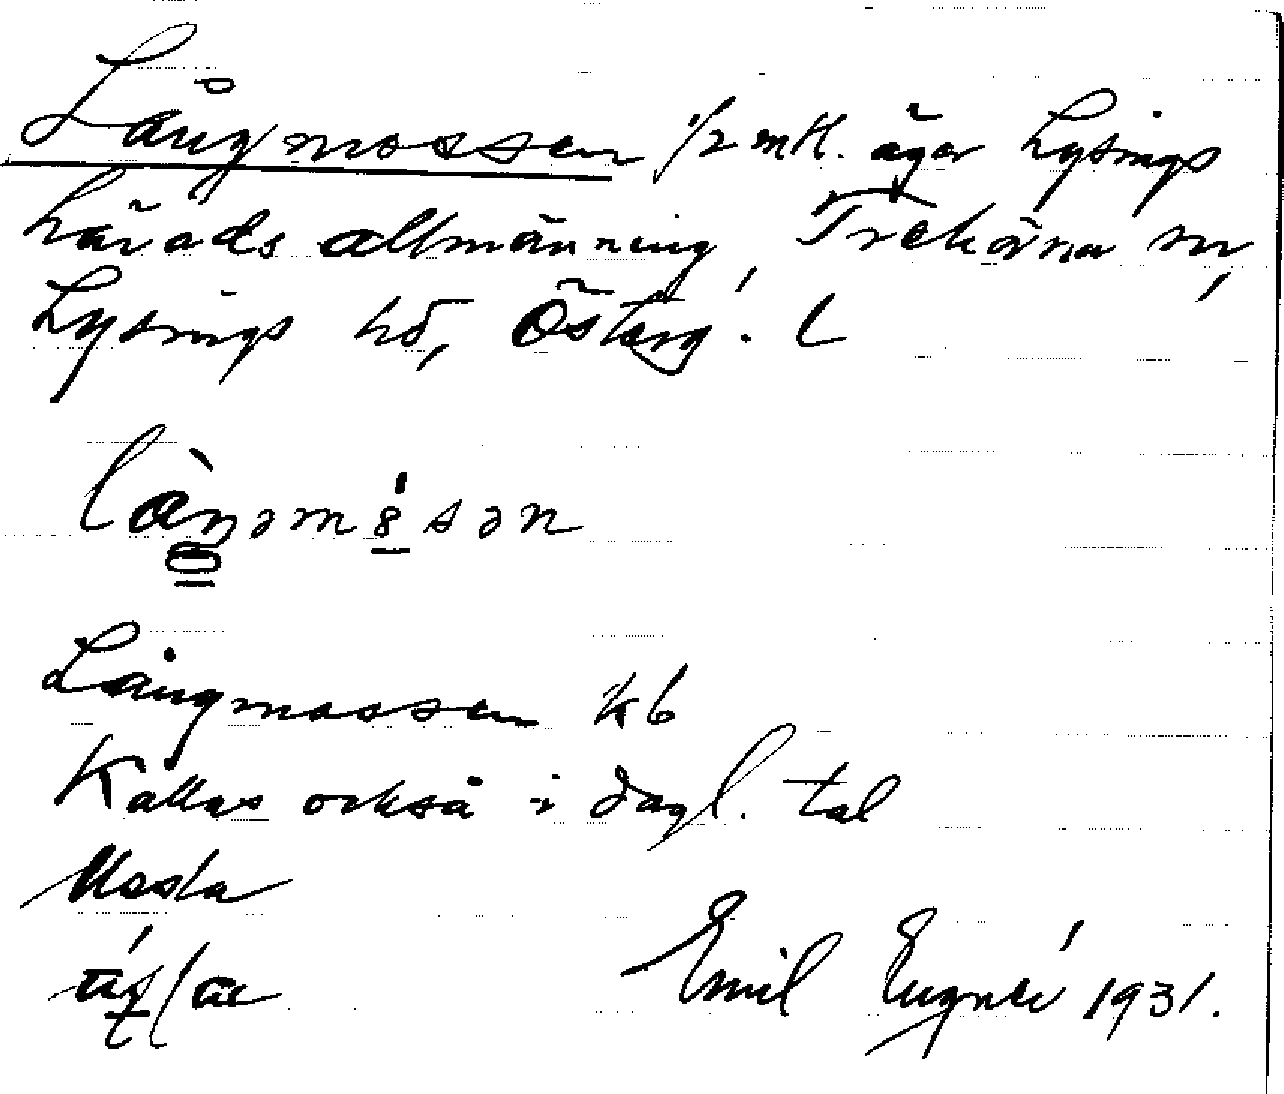 Långmossen 1/2 mtl. äger Lysings
härads allmänning, Trehörna sn,
Lysings hd, Österg. L
Långmossen kb
Kallas också i dagl. tal
Emil Eugnér 1931.